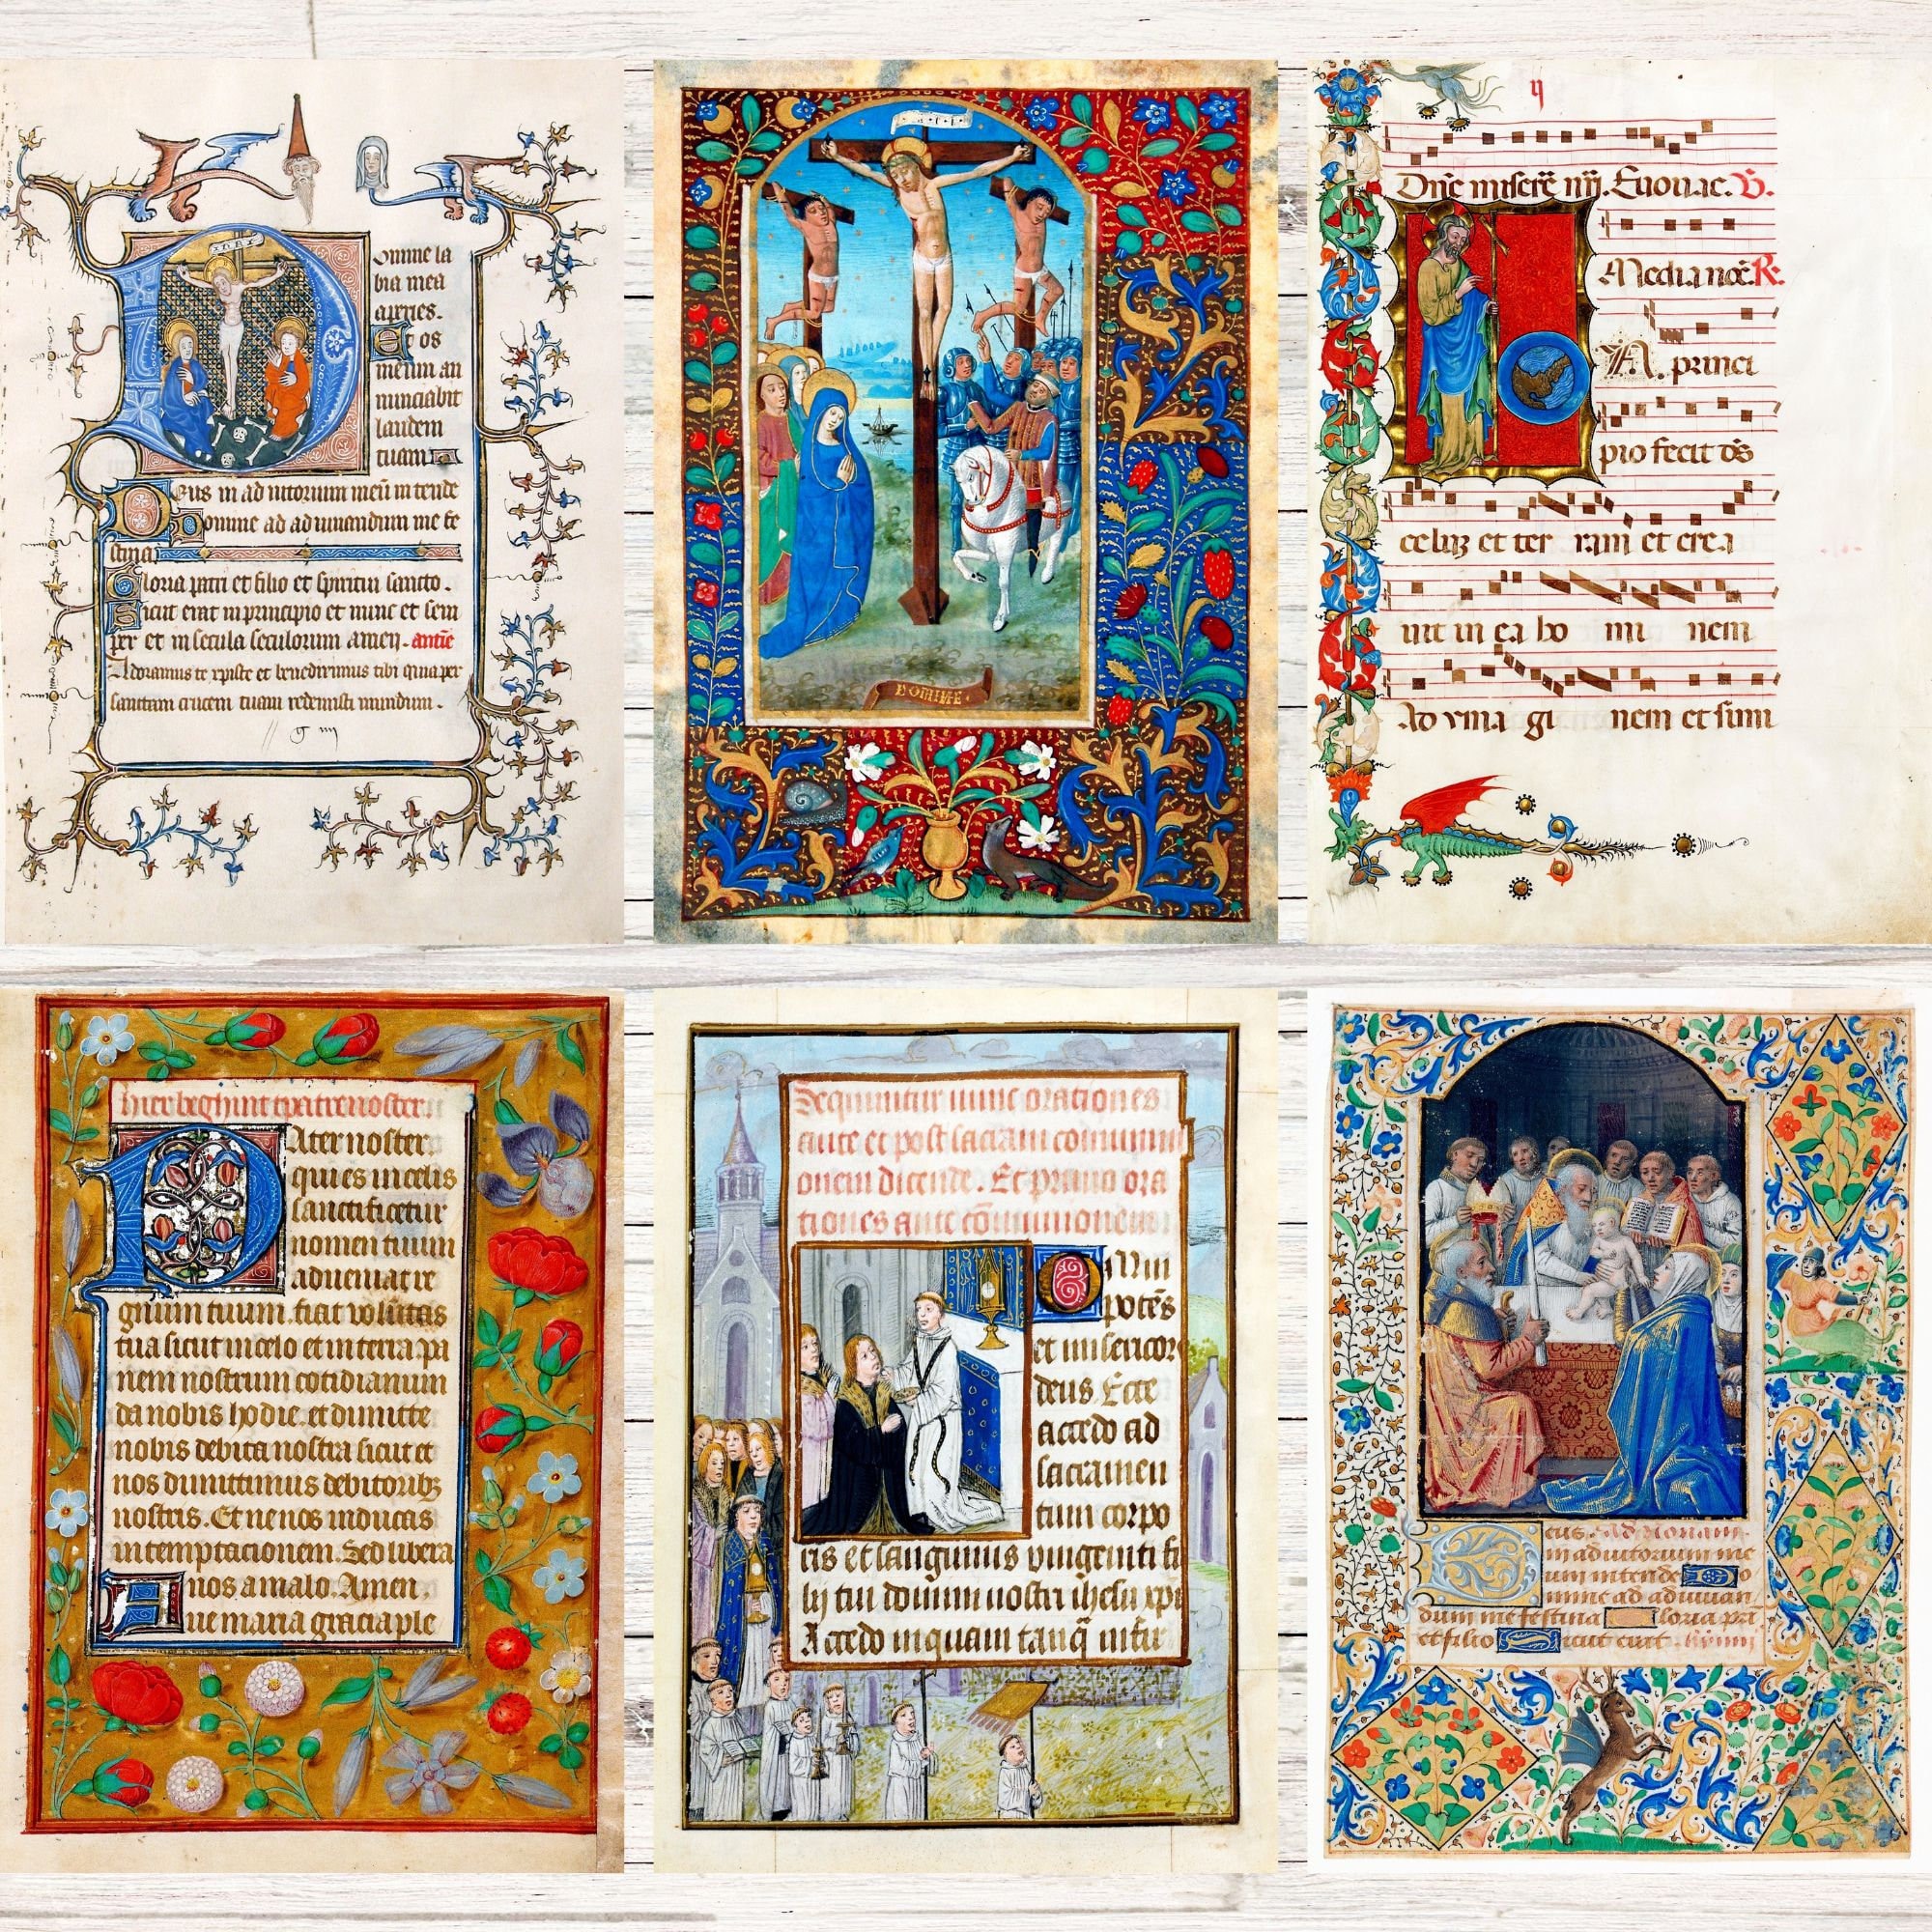 INRI
omine la
bia mea
aperies.
Et os
meum an
nunciabit
laudem
tuam
Deus in adiutorium meū intende
Domine ad adiuuandum me fe
stina
Gloria patri et filio et spiritui sancto.
Sicut erat in principio et nunc et sem
per et in secula seculorum amen. antie
Adoramus te xpiste et benedicimus tibi quia per
sanctam crucem tuam redemisti mundum.
DOMINE
ij
Dn̄e miserē iiij. Euouae. V̄.
Media noc̄. R.
A. princi
pio fecit ds̄
celuȝ et ter ram et crea
uit in ea ho mi nem
Ad yma gi nem et simi
hier beghint tpater noster
Pater noster
qui es in celis
sanctificetur
nomen tuum
adueniat re
gnum tuum. fiat volūtas
tua sicut in celo et in terra pa
nem nostrum cotidianum
da nobis hodie. et dimitte
nobis debita nostra sicut et
nos dimittimus debitoribȝ
nostris. Et ne nos inducas
in temptacionem. Sed libera
nos a malo. Amen
Aue maria gracia ple
Sequuntur nunc orationes
ante et post sacram communi
onem dicende. Et primo ora
tiones ante cōmunionem
Omni
potēs
et misericor
deus. Ecce
accedo ad
sacramen
tum corpo
ris et sanguinis vnigeniti fi
lij tui domini nostri ihesu xpi
Accedo inquam tanq̄ infir
Deus. Ad nonam.
in adiutorium me
um intende Do
mine ad adiuuan
dum me festina Gloria pr̄i
et filio Sicut erat.